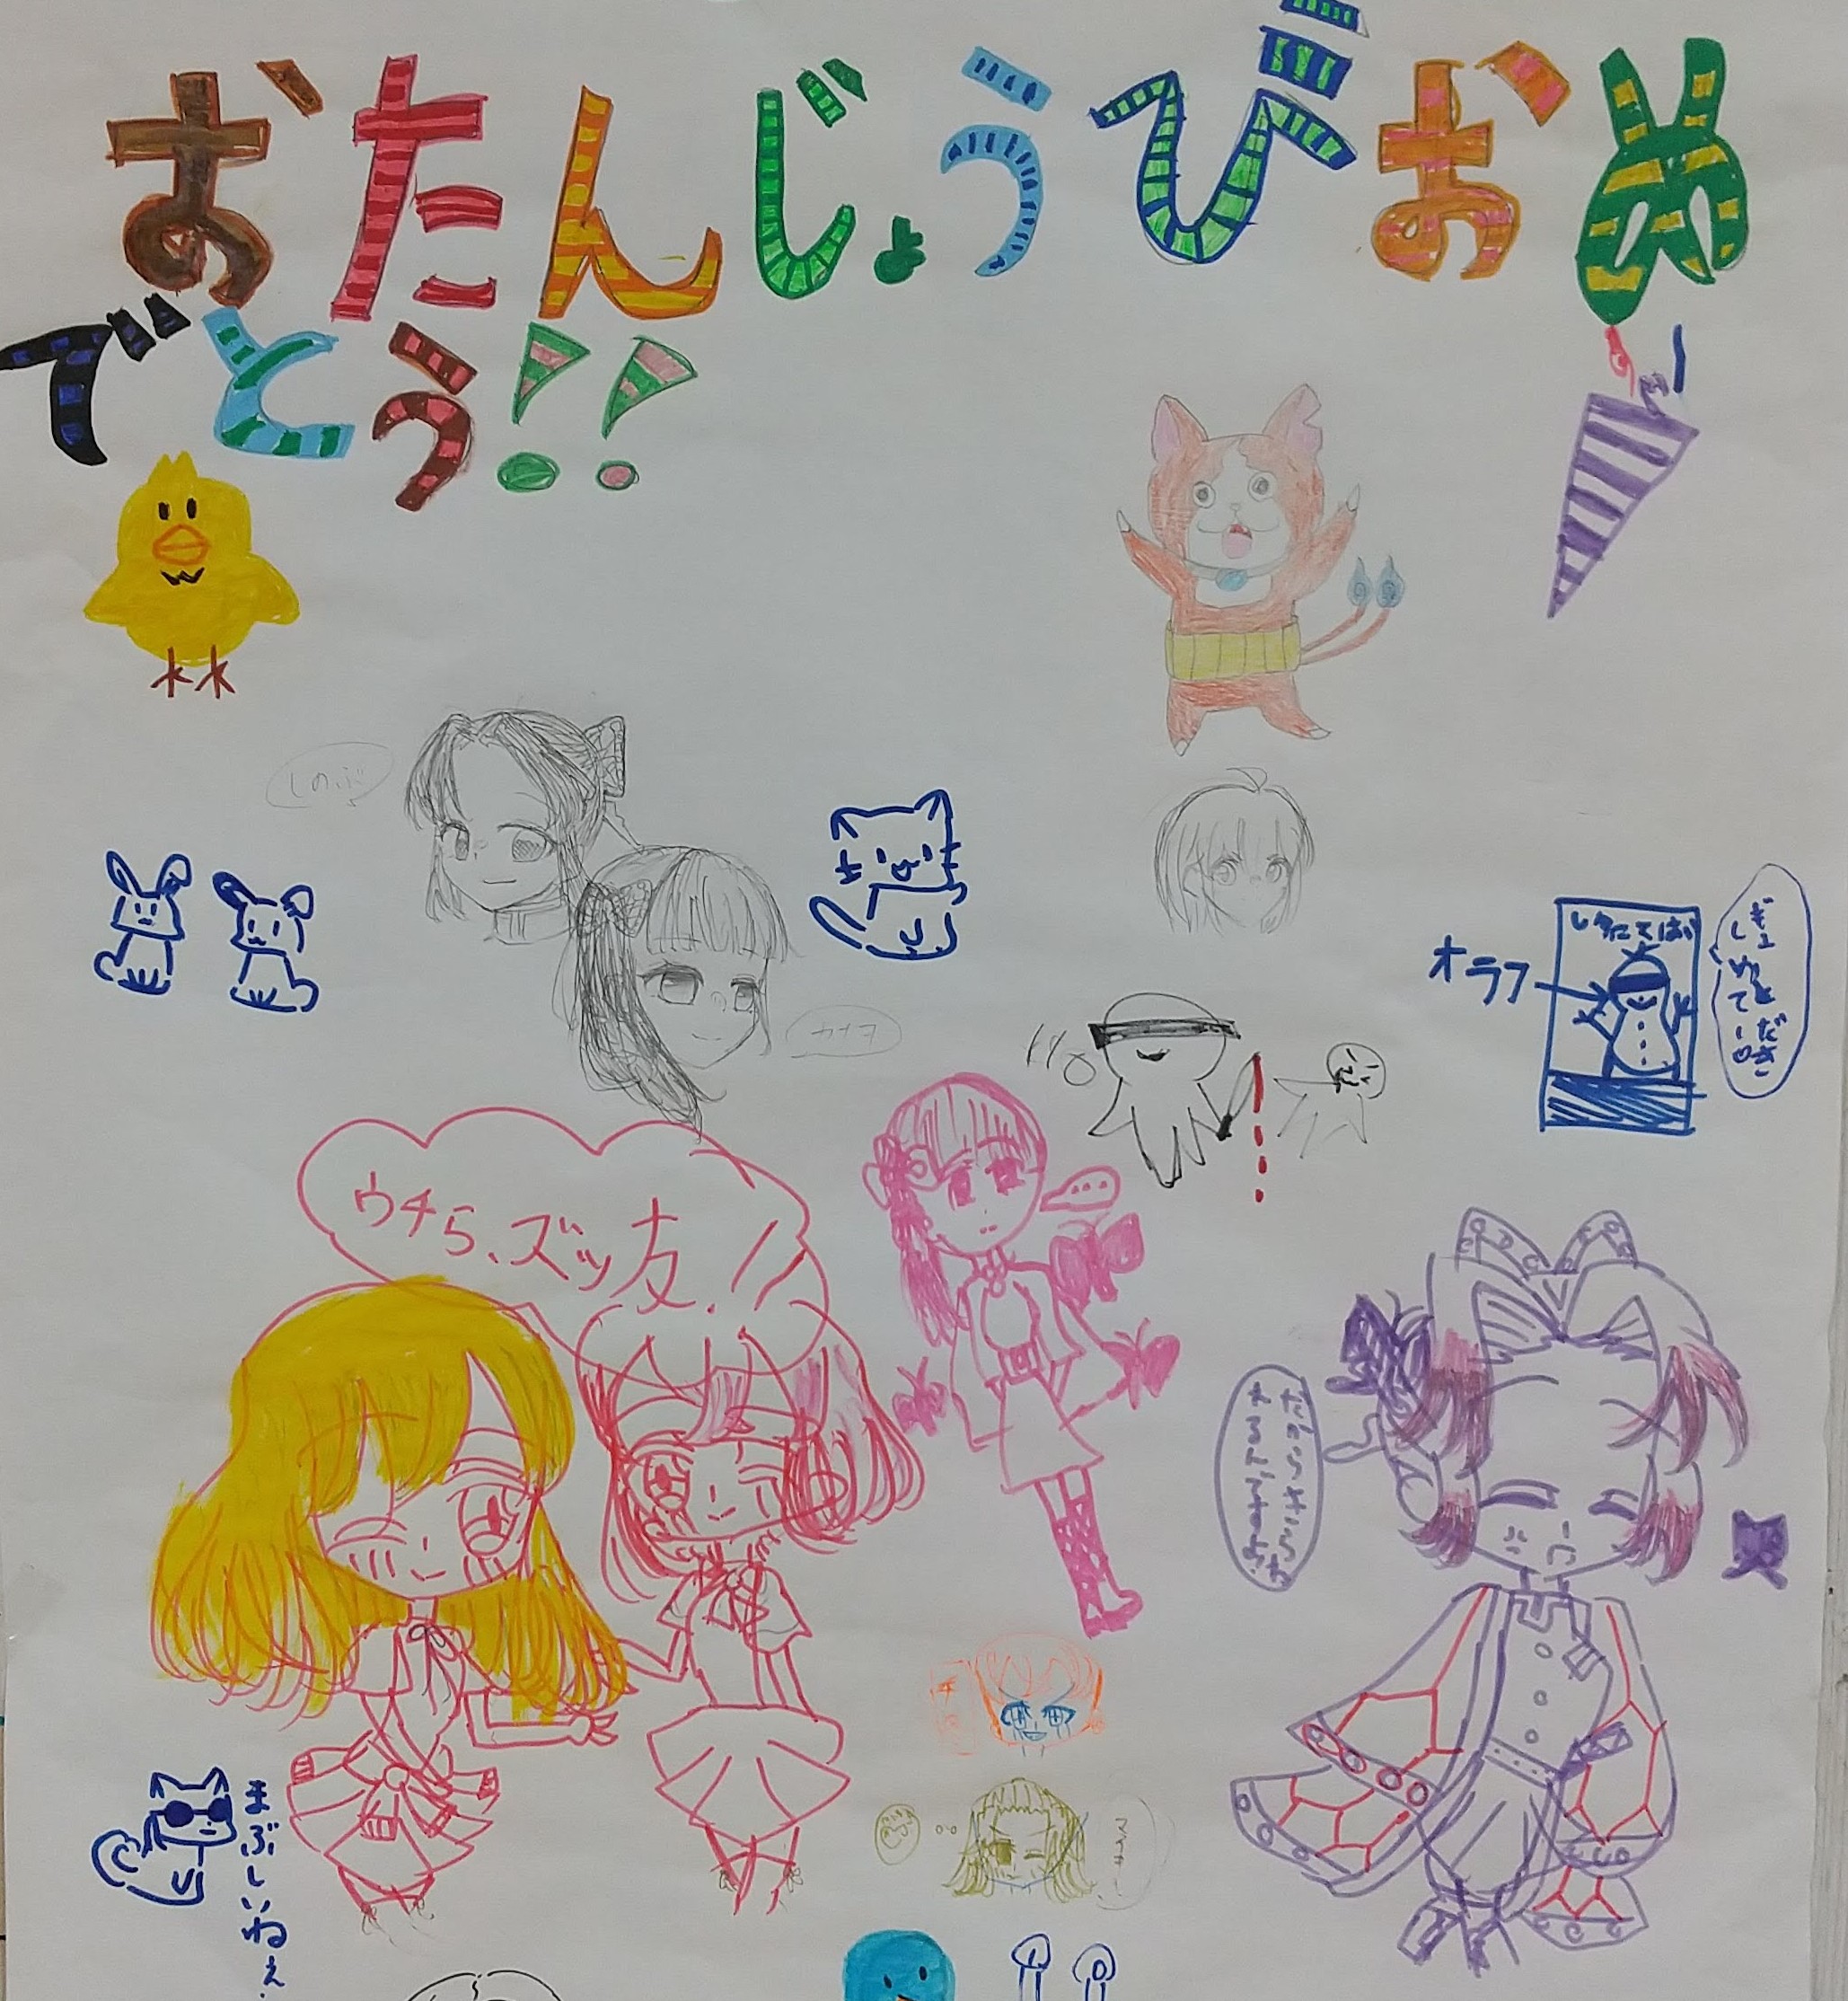 おたんじょうびおめ
でとう!!
しのぶ
カナヲ
オラフ
ギュッとだきしめてー♡
ウチら、ズッ友!!
...
だからきらわれるんですよ。
まぶしいねぇ.